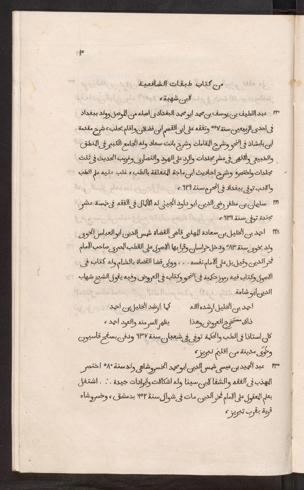 من كتاب طبقات الشافعية
لابن شهبة
عبد اللطيف بن يوسف بن محمد ابو محمد البغدادي اصله من الموصل وولد ببغداد
في احدى الربيعين سنة ٥٥٧ وتفقه على ابي القسم ابن فضلان واقام بحلب شرح مقدمة
ابن بابشاذ في النحو وشرح المقامات وشرح بانت سعاد وله الجامع الكبير في المنطق
والطبيعي والالهي في عشر مجلدات والرد على اليهود والنصارى وغريب الحديث في ثلث
مجلدات واختصره وشرح احاديث ابن ماجة المتعلقة بالطب
والادب توفي ببغداد في المحرم سنة ٦٢٩
سليمان بن مظفر رضي الدين ابو داود الجيلي له الاكمال في الفقه في خمسة عشر
مجلدة توفي سنة ٦٣١
احمد بن الخليل بن سعادة المهلبي قاضي القضاة شمس الدين ابو العباس الخويي
ولد بخوي سنة ٥٨٣ ودخل خراسان وقرا بها الاصول على القطب المصري صاحب الامام
فخر الدين وقيل بل على الامام نفسه وولي قضا القضاة بالشام وله كتاب في
الاصول وكتاب فيه رموز حكمية في النحو وكتاب في العروض وفيه يقول الشيخ شهاب
الدين ابو شامة
احمد بن الخليل ارشده الله كما ارشد الخليل بن احمد
ذاك مستخرج العروض وهذا يظهر السر منه والعود احمد
كان استاذا في الطب والحكمة توفي في شعبان سنة ٦٣٧ ودفن بسفح قاسيون
وخوي مدينة من اقليم تبريز
عبد الحميد بن عيسى شمس الدين ابو محمد الخسروشاهي ولد سنة ٥٨٠ اختصر
المهذب في الفقه والشفا لابن سينا وله اشكالات وايرادات جيدة اشتغل
بعلم المعقول على الامام فخر الدين مات في شوال سنة ٦٥٢ بدمشق وخسروشاه
قرية بقرب تبريز